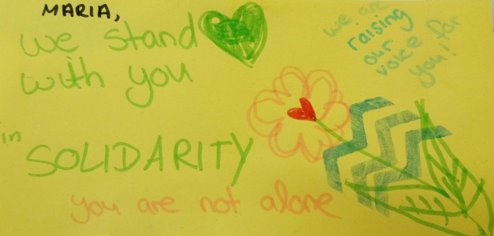 MARIA,
we stand
with you
in SOLIDARITY
you are not alone
we are
raising
our
voice for
you!